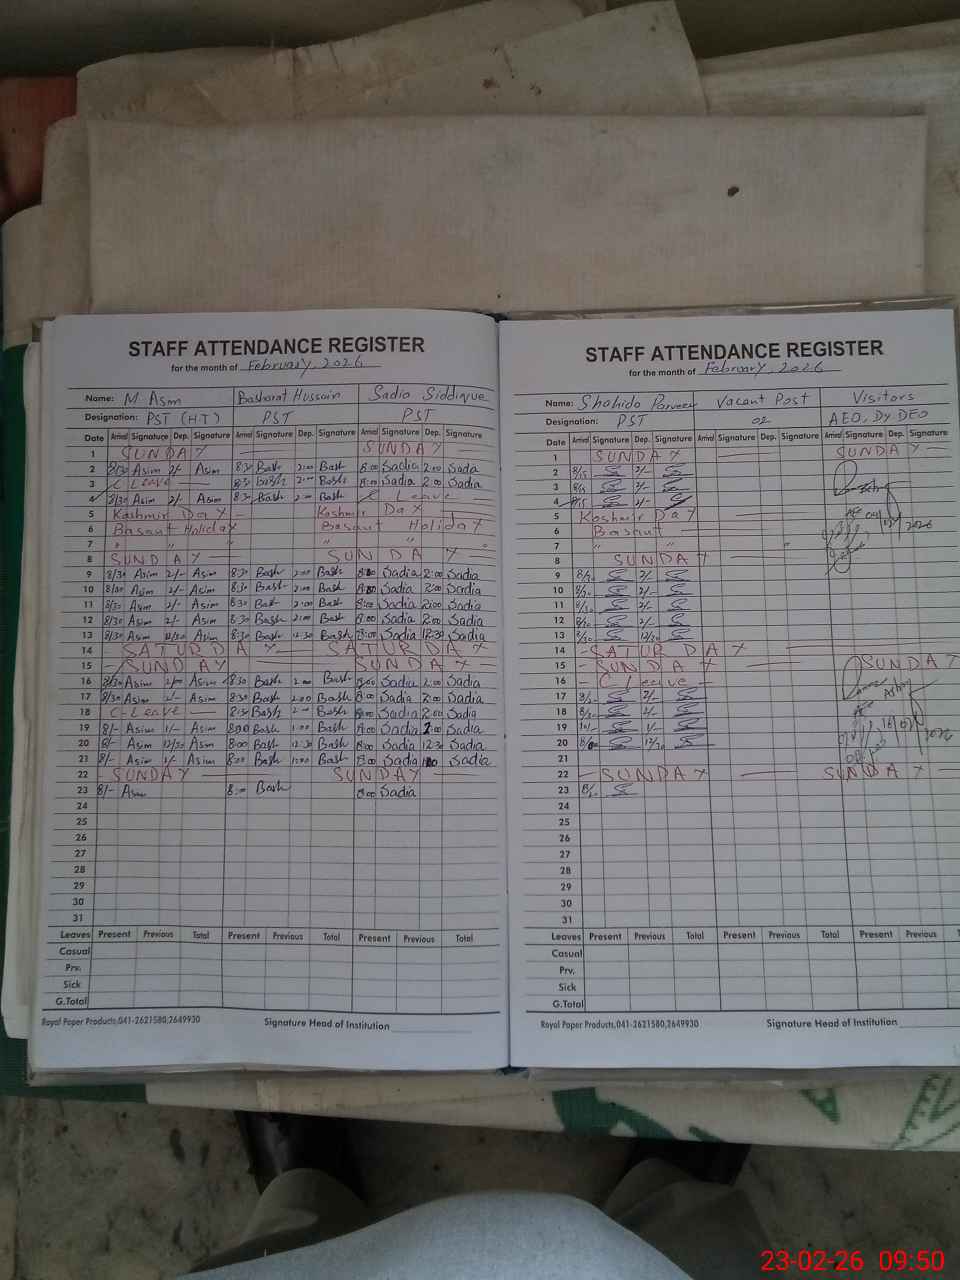 STAFF ATTENDANCE REGISTER
for the month of February, 2026
Name: M Asim Basharat Hussain Sadia Siddique
Designation: PST (H.T) PST PST
Date Arrival Signature Dep. Signature Arrival Signature Dep. Signature Arrival Signature Dep. Signature
1 SUNDAY SUNDAY
2 8/30 Asim 2/- Asim 8:30 Bash 2:00 Bash 8:00 Sadia 2:00 Sadia
3 C Leave 8:30 Bash 2:00 Bash 8:00 Sadia 2:00 Sadia
4 8/30 Asim 2/- Asim 8:30 Bash 2:00 Bash C Leave
5 Kashmir Day Kashmir Day
6 Basant Holiday Basant Holiday
7 " " " " "
8 SUNDAY SUNDAY
9 8/30 Asim 2/- Asim 8:30 Bash 2:00 Bash 8:00 Sadia 2:00 Sadia
10 8/30 Asim 2/- Asim 8:30 Bash 2:00 Bash 8:00 Sadia 2:00 Sadia
11 8/30 Asim 2/- Asim 8:30 Bash 2:00 Bash 8:00 Sadia 2:00 Sadia
12 8/30 Asim 2/- Asim 8:30 Bash 2:00 Bash 8:00 Sadia 2:00 Sadia
13 8/30 Asim 12/30 Asim 8:30 Bash 12:30 Bash 8:00 Sadia 12:30 Sadia
14 SATURDAY SATURDAY
15 SUNDAY SUNDAY
16 8/30 Asim 2/00 Asim 8:30 Bash 2:00 Bash 8:00 Sadia 2:00 Sadia
17 8/30 Asim 2/- Asim 8:30 Bash 2:00 Bash 8:00 Sadia 2:00 Sadia
18 C-Leave 8:30 Bash 2:00 Bash 8:00 Sadia 2:00 Sadia
19 8/- Asim 1/- Asim 8:00 Bash 1:00 Bash 8:00 Sadia Sadia
20 8/- Asim 12/30 Asim 8:00 Bash 12:30 Bash 8:00 Sadia 12:30 Sadia
21 8/- Asim 1/- Asim 8:00 Bash 1:00 Bash 8:00 Sadia 1:00 Sadia
22 SUNDAY SUNDAY
23 8/- Asim 8:00 Bash 8:00 Sadia
24
25
26
27
28
29
30
31
Leaves Present Previous Total Present Previous Total Present Previous Total
Casual
Prv.
Sick
G.Total
Royal Paper Products,041-2621580,2649930 Signature Head of Institution
STAFF ATTENDANCE REGISTER
for the month of February, 2026
Name: Shahida Parveen Vacant Post Visitors
Designation: PST 02 AEO, Dy DEO
Date Arrival Signature Dep. Signature Arrival Signature Dep. Signature Arrival Signature Dep. Signature
1 SUNDAY SUNDAY
2 2/-
3 2/-
4 2/-
5 Kashmir Day
6 Basant 2026
7 " " "
8 SUNDAY
9 2/-
10 2/-
11 2/-
12 2/-
13 12/30
14 SATURDAY
15 SUNDAY SUNDAY
16 C leave
17 2/-
18 2/-
19 1/-
20 12/30
21
22 SUNDAY SUNDAY
23
24
25
26
27
28
29
30
31
Leaves Present Previous Total Present Previous Total Present Previous
Casual
Prv.
Sick
G.Total
Royal Paper Products,041-2621580,2649930 Signature Head of Institution
23-02-26 09:50